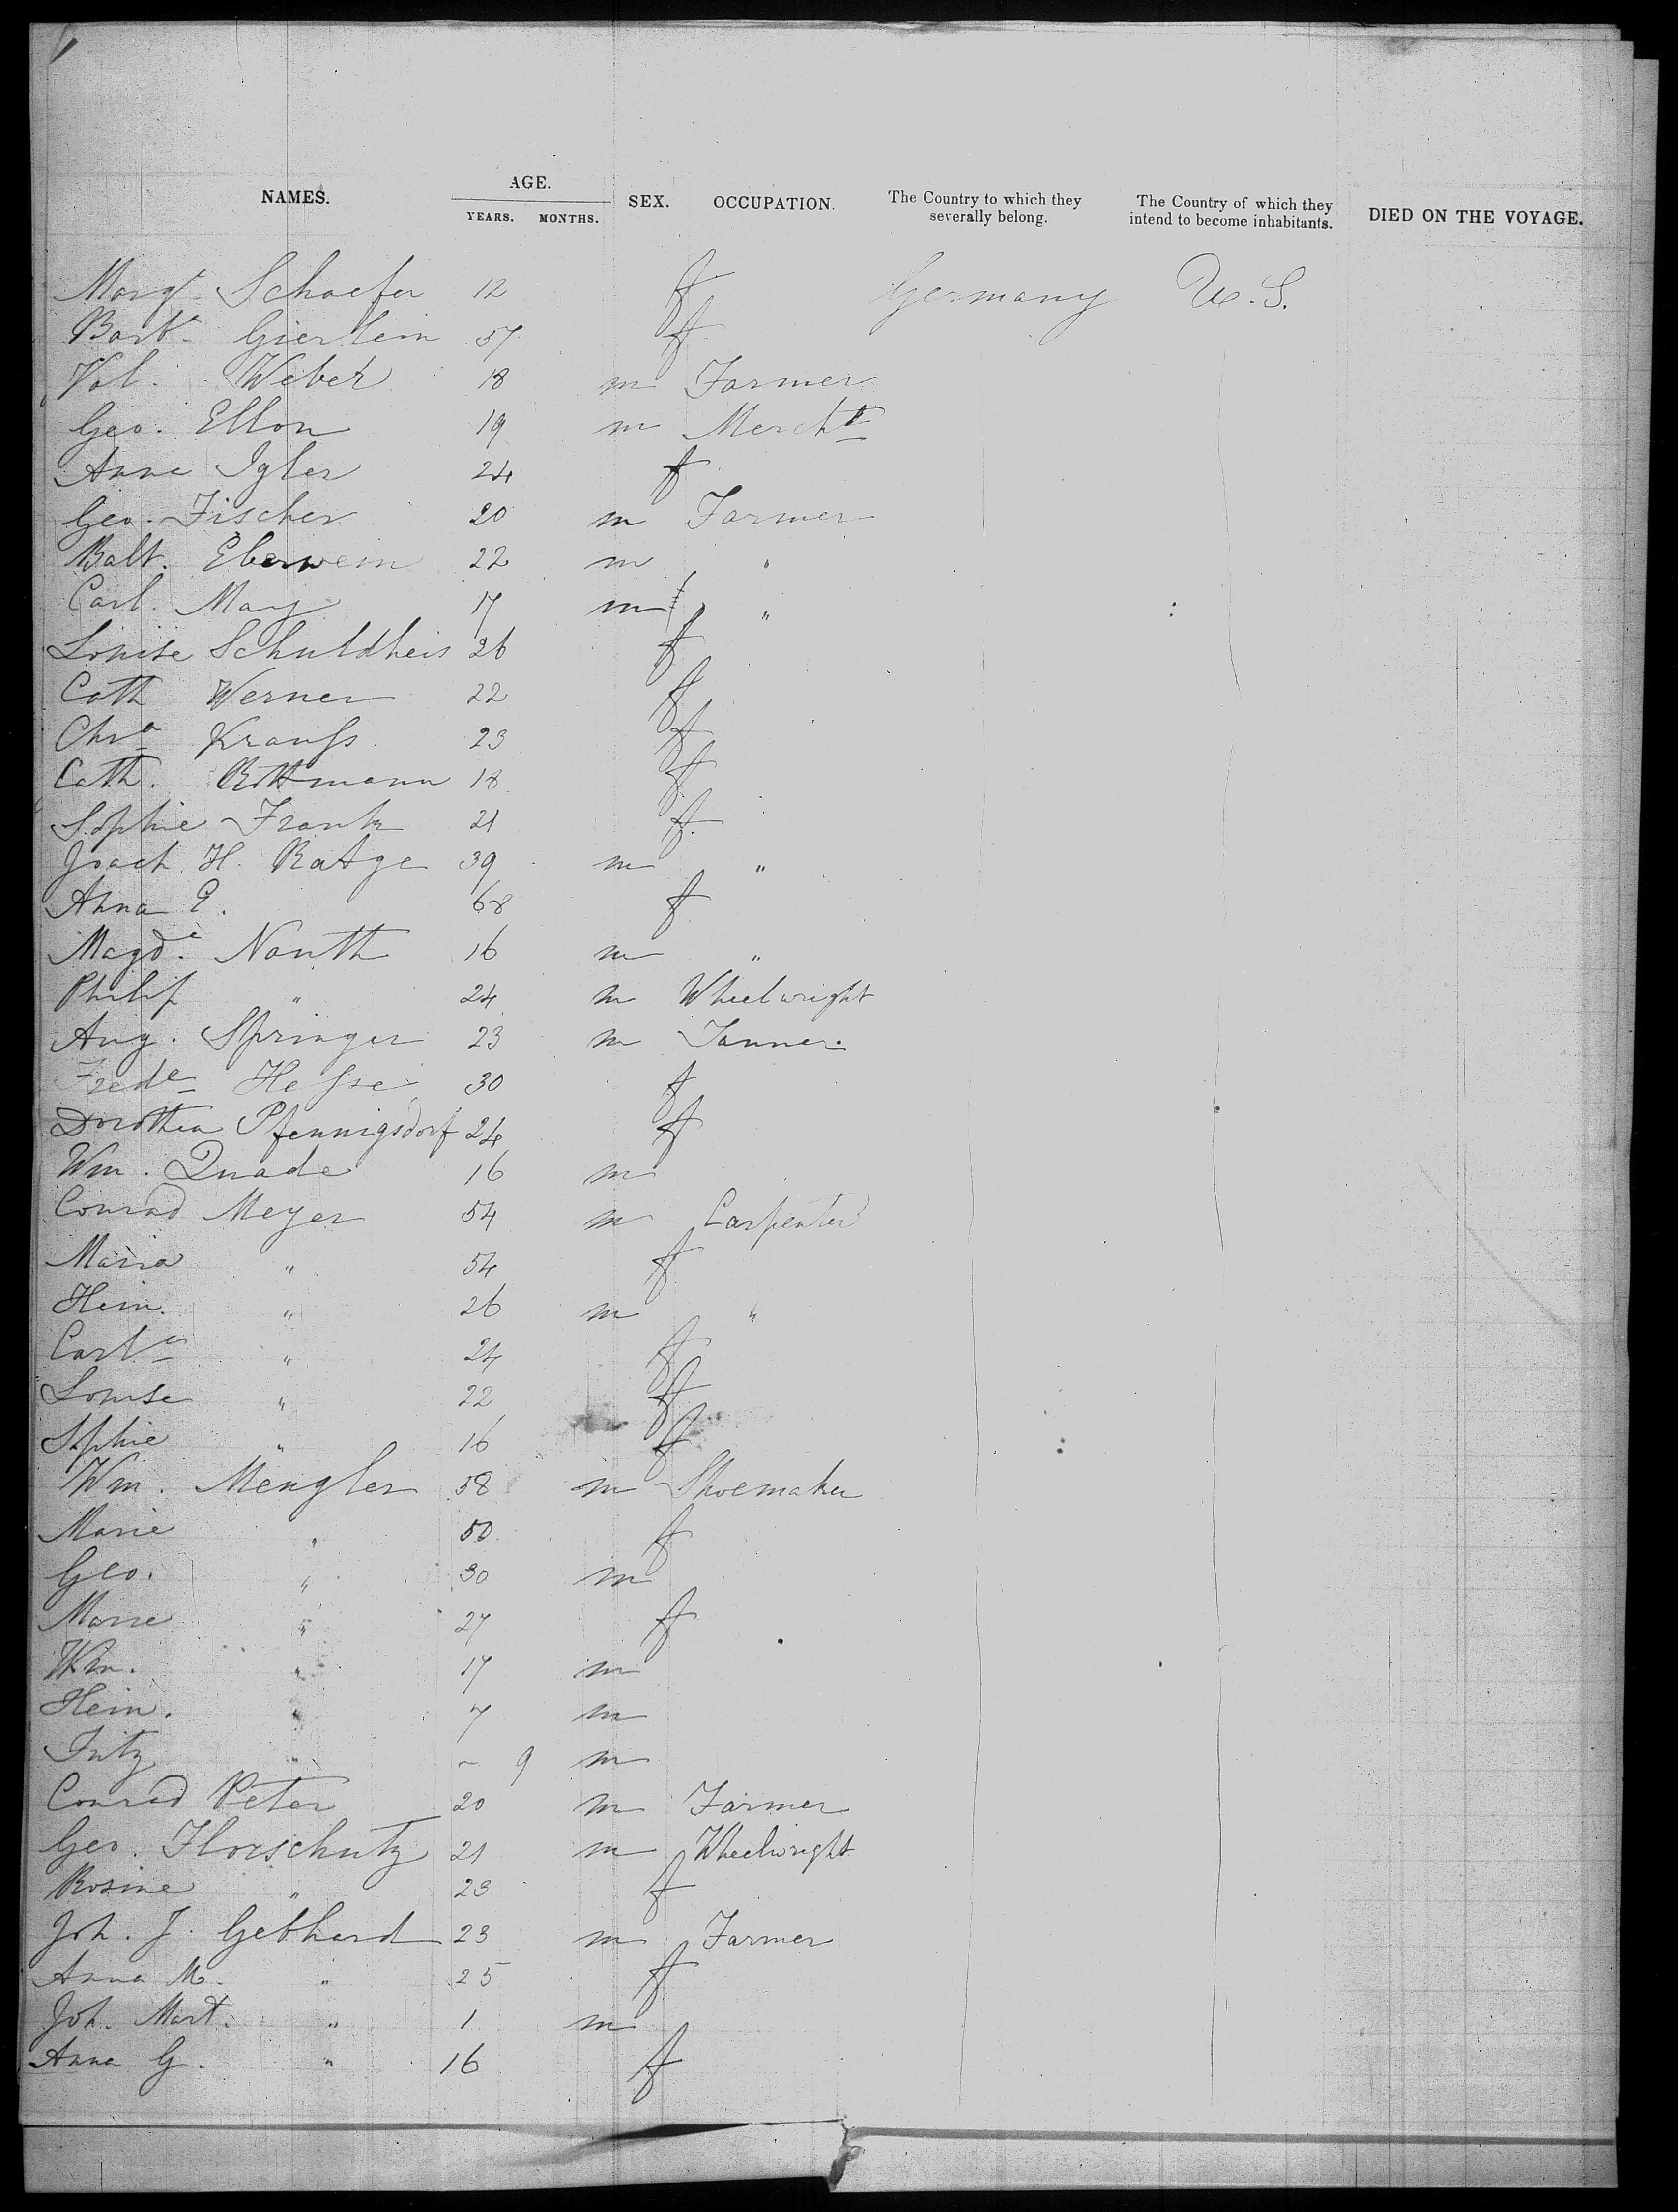 NAMES. AGE. YEARS. MONTHS. SEX. OCCUPATION. The Country to which they severally belong. The Country of which they intend to become inhabitants. DIED ON THE VOYAGE.
Margt Schaefer 12 f Germany U.S.
Barb. Gierlein 57 f
Val. Weber 18 m Farmer
Geo. Ellon 19 m Mercht
Anna Igler 24 f
Geo. Fischer 20 m Farmer
Balt. Eberwein 22 m "
Carl. May 17 m "
Louise Schuldheis 26 f
Cath Werner 22 f
Chra Krauss 23 f
Cath. Rottmann 18 f
Sophie Frank 21 f
Joach. H. Ratge 39 m "
Anna E. 68 f
Magde Nauth 16 m "
Philip " 24 m Wheelwright
Aug. Springer 23 m Tanner
Frede Hesse 30 f
Dorothea Pfennigsdorf 24 f
Wm. Quade 16 m
Conrad Meyer 54 m Carpenter
Maria " 54 f
Hein. " 26 m "
" 24 f
Louise " 22 f
Sophie " 16 f
Wm. Mengler 58 m Shoemaker
Marie " 50 f
Geo. " 30 m
Marie " 27 f
Wm. " 17 m
Hein. " 7 m
Fritz " - 9 m
Conrad Peter 20 m Farmer
Geo. Florschutz 21 m Wheelwright
Rosine " 23 f
Joh. J. Gebhard 23 m Farmer
Anna M. " 25 f
Joh. Mart. " 1 m
Anna G. " 16 f